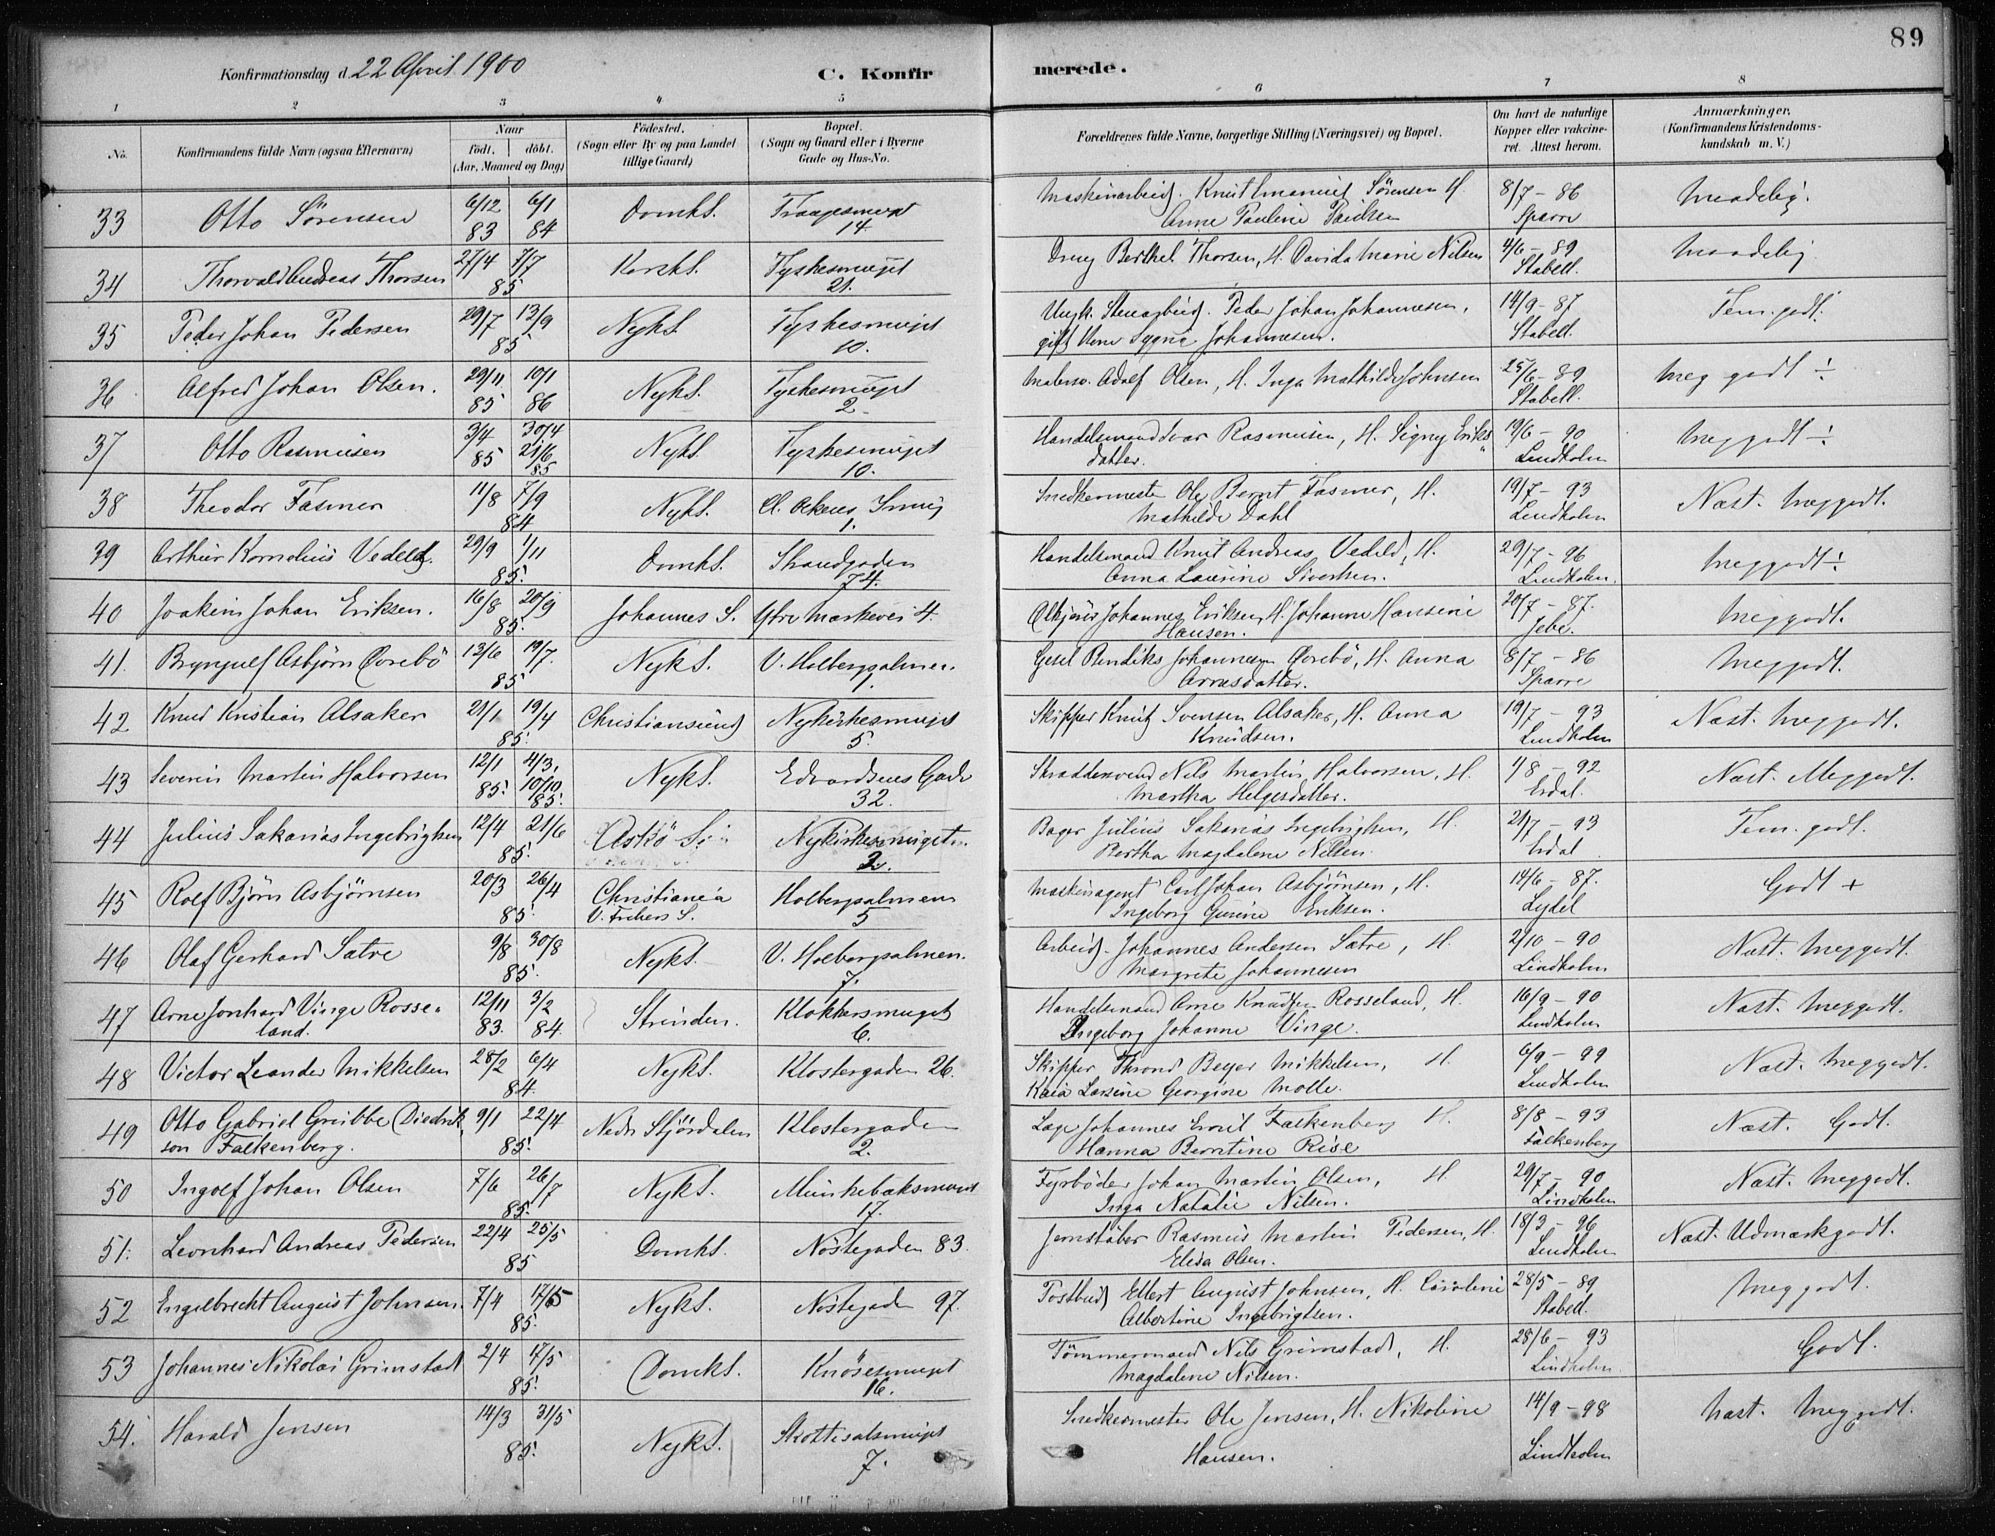 89
Konfirmationsdag d. 22 April 1900
C. Konfirmerede.
1 2 3 4 5 6 7 8
No. Konfirmandens fulde Navn (ogsaa Efternavn) Naar født. døbt. (Aar, Maaned og Dag) Fødested. (Sogn eller By og paa Landet tillige Gaard) Bopæl. (Sogn og Gaard eller i Byerne Gade og Hus-No. Forældrenes fulde Navne, borgerlige Stilling (Næringsvei) og Bopæl. Om havt de naturlige Kopper eller vakcineret. Attest herom. Anmærkninger. (Konfirmandens Kristendomskundskab m. V.)
33 Otto Sörensen 6/12 83 6/1 84 Domks. 14 Maskinarbeid. Knut Emanuel Sörensen H. Anne Pauline 8/7 - 86 Sparre Maadelig.
34 Thorvald Andreas Thorsen 27/4 7/7 85 Korsks. Tyskesmuget 21. Dreng Berthel Thorsen, H. Davida Marie Nilsen 4/6 - 89 Stabell. Maadelig
35 Peder Johan Pedersen 29/7 13/9 85 Nyks. Tyskesmuget 10. Ungk. Stenarbeid. Peder Johan Johannesen, gift Johannesen. 14/9 - 87 Stabell. Tem. godt.
36 Alfred Johan Olsen. 29/11 85 10/1 86 Nyks. Tyskesmuget 2 Malersv. Adolf Olsen, H. Inga Mathilde Johnsen 25/6 - 89 Stabell. Meg godt ÷
37 Otto Rasmusen 3/4 85 30/4 21/6 85 Nyks. Tyskesmuget 10. Handelsmand Ivar Rasmusen, H. Signy Eriksdatter. 19/6 - 90 Lindholm Meg godt ÷
38 Theodor Fasmer 11/8 7/9 84 Nyks. 1. Snedkermester Ole Bernt Fasmer, H. Mathilde Dahl 19/7 - 93 Lindholm Næst. Meg godt.
39 Arthur Kornelius Vedeld. 29/9 1/11 85. Domks. Strandgaden 74 Handelsmand Knut Andreas Vedeld, H. Anna Laurine Sivertsen. 29/7 - 96 Lindholm. Meg godt ÷
40 Joakim Johan Eriksen. 16/8 20/9 85. Johannes S. Ytre Markevei 4. Johannes Eriksen, H. Johanne Hansine Hansen. 20/7 - 87. Jebe. Meg godt.
41. Brynjulf Asbjörn Övrebö 13/6 19/7. 85 Nyks. V. Holbergsalmen. 1. Gesel Bendiks Johannesen Övrebö, H. Anna Arnesdatter. 8/7 - 86 Sparre Meg godt.
42 Knud Kristian Alsaker 21/1 19/4 85. Christiansund Nykirkesmuget 5. Skipper Knut Svensen Alsaker, H. Anna Knudsen. 19/7 - 93 Lindholm Næst. Meg godt.
43 Severin Martin Halvorsen 12/1 85. 4/3, 10/10 85. Nyks. Edvardsens Gade 32. Skræddersvend Nils Martin Halvorsen, H. Martha Helgesdatter. 4/8 - 92 Erdal. Næst. Meg godt.
44 Julius Sakarias Ingebrigtsen 12/4 21/6 85. Askö Nykirkesmuget. 2. Bager Julius Sakarias Ingebrigtsen, H. Bertha Magdalene Nilsen. 21/7 - 93 Erdal Tem. godt.
45 Rolf Björn Asbjörnsen 20/3 26/4 85. Christiania V. Frelsers S. Holbergsalmen 5 Maskinagent Carl Johan Asbjörnsen, H. Ingeborg Gurine Eriksen. 14/6 - 87. Godt +
46 Olaf Gerhard Sætre 9/8 30/8 85. Nyks. V. Holbergsalmen. 7. Arbeid. Johannes Andersen Sætre, H. Margrete Johannesen 2/10 - 90 Lindholm Næst. Meg godt.
47 Arne Jonhard Vinge Rosseland. 12/11 83. 3/2 84. Strinden. Klokkersmuget 6. Handelsmand Arne Knudsen Rosseland, H. Ingeborg Johanne Vinge. 16/9 - 90 Lindholm Næst. Meg godt.
48 Victor Leander Mikkelsen 28/2 6/4 84. Nyks. Klostergaden 26. Skipper Thrond Beyer Mikkelsen, H. Kaia Larsine Georgine Molle. 6/9 - 99 Lindholm Næst. Meg godt.
49 Otto Gabriel Gribbe Diedrikson Falkenberg. 9/1 22/4 85. Nedr. Stjördalen Klostergaden 2. Læge Johannes Ernst Falkenberg H. Hanna Berntine Riise 8/8 - 93 Falkenberg Næst. Godt.
50 Ingolf Johan Olsen 7/6 26/7 85. Nyks. Munkebæksmuget 17. Fyrböder Johan Martin Olsen, H. Inga Natalie Nilsen. 29/7 - 90 Lindholm Næst. Meg godt.
51. Leonhard Andreas Pedersen 22/4 25/5 85 Domks. Nöstegaden 83. Jernstöber Rasmus Martin Pedersen, H. Elisa Olsen. 18/3 - 96 Lindholm Næst. Udmærk godt.
52 Engelbrecht August Johnsen. 7/4 17/5 85. Nyks. Nöstegaden 97. Postbud Ellert August Johnsen, H. Caroline Albertine Ingebrigtsen. 28/5 - 89 Stabell. Meg godt.
53 Johannes Nikolai Grimstad 2/4 17/5 85. Domks. Knösesmuget 16. Tömmermand Nils Grimstad, H. Magdalene Nilsen. 28/6 - 93 Lindholm. Godt.
54. Harald Jensen 14/3 31/5 85. Nyks. Skottesalsmuget 7. Snedkermester Ole Jensen, H. Nikoline Hansen. 14/9 - 98 Lindholm Næst. Meg godt.